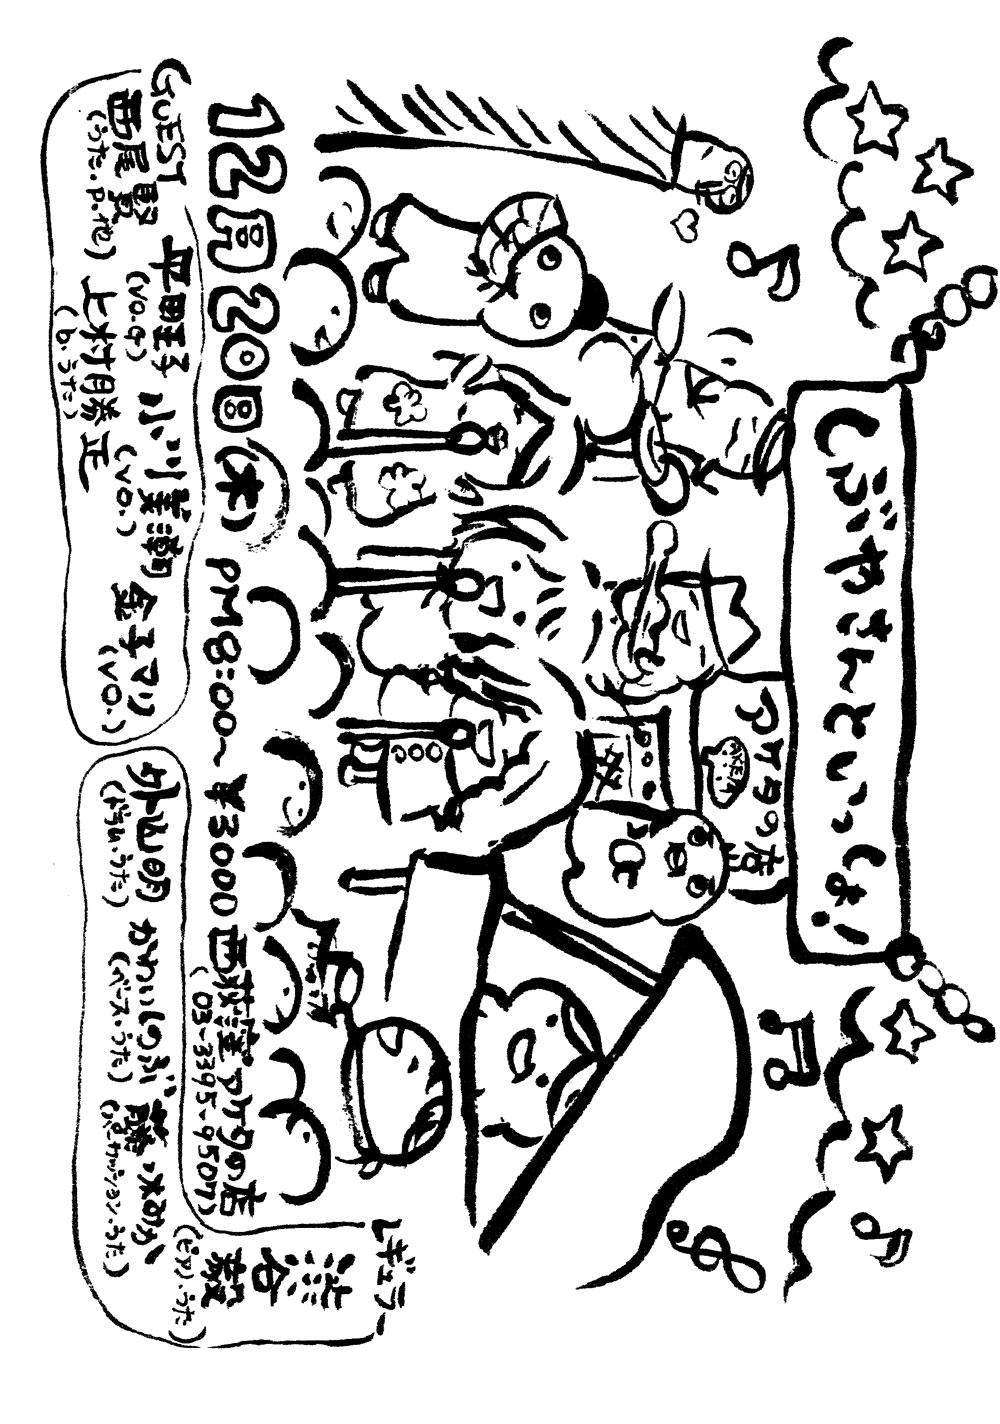 しぶやさんといっしょ!
アケタの店
AKETA
12月20日(木) PM8:00~ ¥3000 西荻窪アケタの店
(03-3395-9507)
GUEST
西尾賢
(うた.P.他)
平田王子
(Vo.G)
小川美潮
(Vo.)
金子マリ
(Vo.)
上村勝正
(b.うた)
レギュラー
渋谷毅
(ピアノ.うた)
外山明
(ドラム.うた)
かわいしのぶ
(ベース.うた)
藤ふみか
(ぱーカッション.うた)